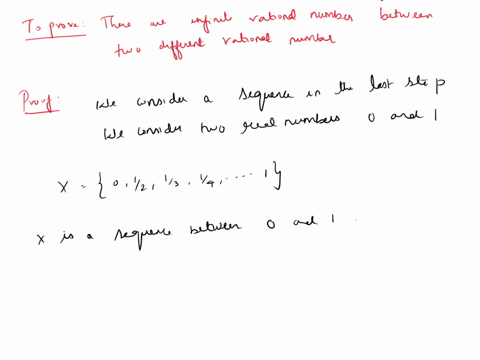 To prove: There are infinite rational number between
two different rational number
Proof: We consider a sequence in the last step
We consider two real numbers 0 and 1
X = { 0, 1/2, 1/3, 1/4, ..... 1 }
X is a sequence between 0 and 1 .